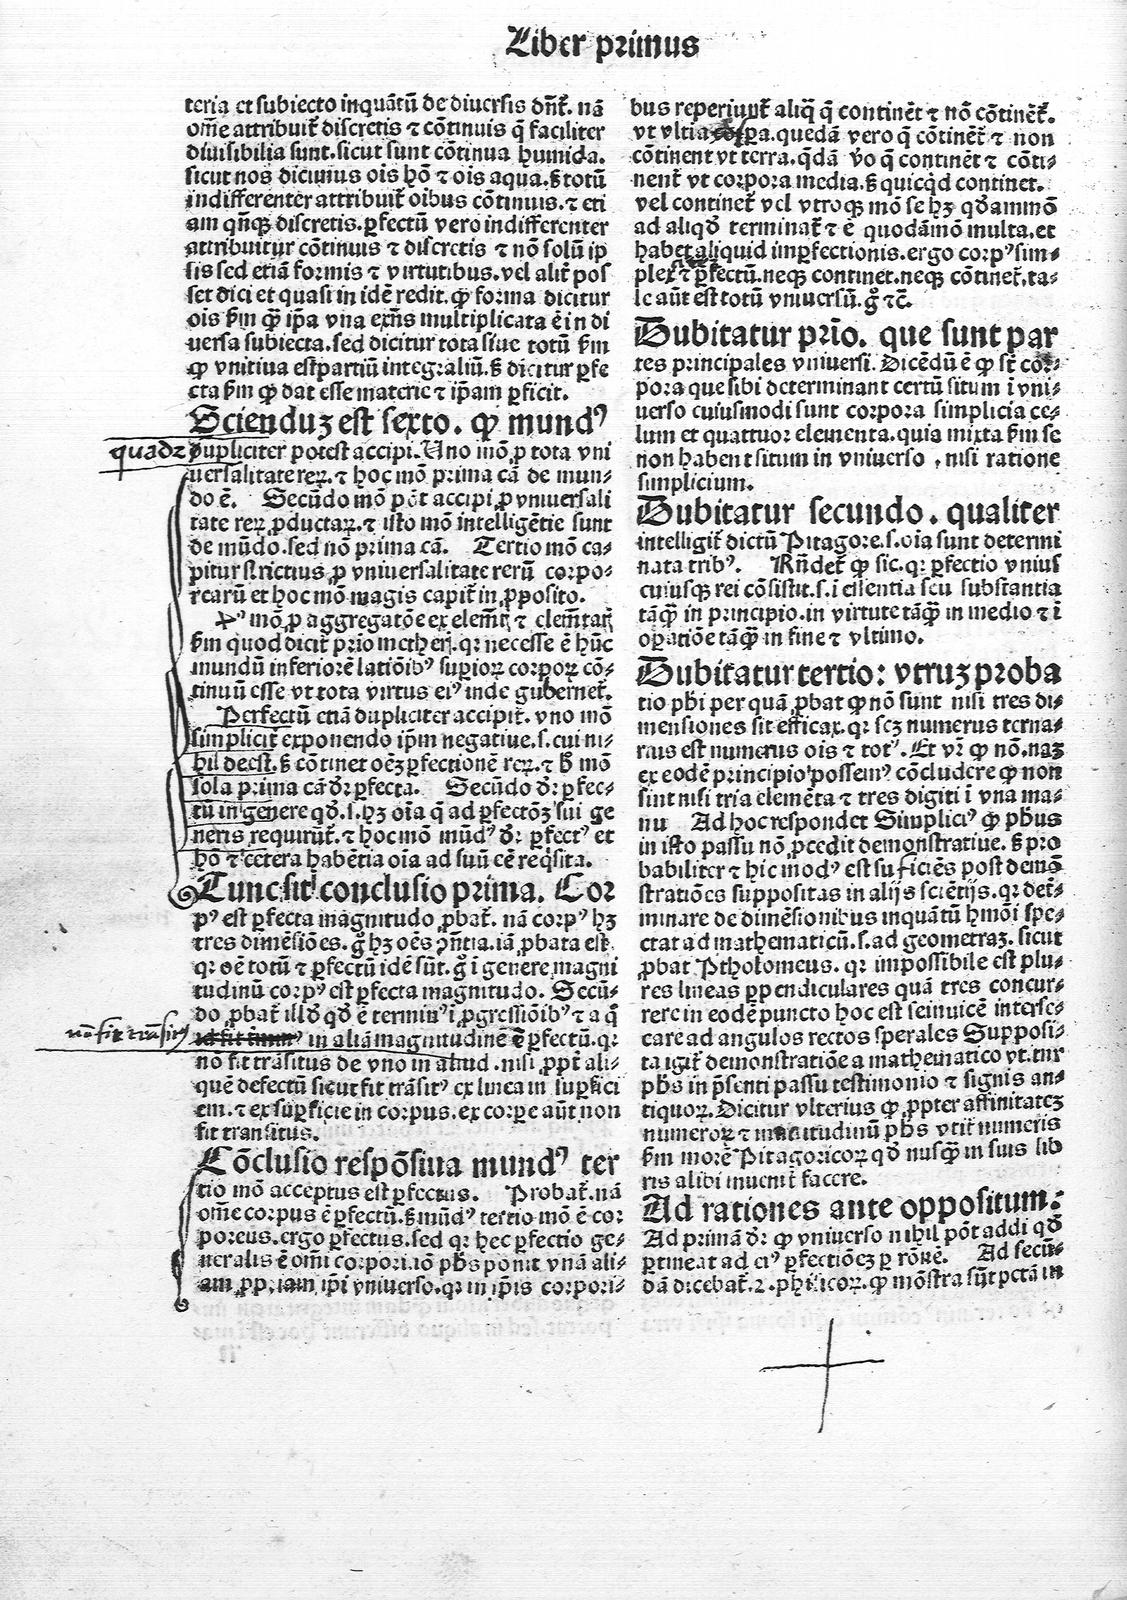 Liber primus
teria et subiecto inquãtũ de diuersis dñr̃. nã
om̃e attribuit̃ discretis ⁊ cõtinuis q̃ faciliter
diuisibilia sunt. sicut sunt cõtinua humida.
sicut nos dicimus oĩs hõ ⁊ oĩs aqua. s̃ totũ
indifferenter attribuit̃ oĩbus cõtinuis. ⁊ eti
am qñqꝫ discretis. ꝑfectũ vero indifferenter
attribuitur cõtinuis ⁊ discretis ⁊ nõ solũ ip
sis sed etiã formis ⁊ virtutibus. vel alit̃ pos
set dici et quasi in idẽ redit. ꝙ forma dicitur
oĩs s̃m ꝙ ip̃a vna exñs multiplicata ẽ in di
uersa subiecta. sed dicitur tota siue totũ s̃m
ꝙ vnitiua est partiũ integraliũ. s̃ dicitur ꝑfe
cta s̃m ꝙ dat esse materie ⁊ ip̃am ꝑficit.
Scienduꝫ est sexto. ꝙ mundꝰ
quadr
dupliciter potest accipi. Uno mõ ꝓ tota vni
uersalitate reꝝ. ⁊ hoc mõ prima cã de mun⸗
do ẽ. Secũdo mõ põt accipi ꝓ vniuersali
tate reꝝ ꝓductaꝝ. ⁊ isto mõ intelligẽtie sunt
de mũdo. sed nõ prima cã. Tertio mõ ca⸗
pitur strictius ꝓ vniuersalitate rerũ corpo⸗
rearũ et hoc mõ magis capit̃ in ꝓposito.
4ꝰ mõ ꝓ aggregatõe ex elem̃t̃ ⁊ elem̃tat̃
s̃m quod dicit̃ prĩo metheꝝ. qꝛ necesse ẽ hũc
mundũ inferiorẽ latiõibꝰ superioꝝ corpoꝝ cõ⸗
tinuũ esse vt tota virtus eiꝰ inde gubernet̃.
Perfectũ etiã dupliciter accipit̃. vno mõ
simplicit̃ exponendo ip̃m negatiue. s. cui ni⸗
hil deest. s̃ cõtinet oẽꝫ ꝑfectionẽ reꝝ. ⁊ h̃ mõ
sola prima cã dr̃ ꝑfecta. Secũdo dr̃ ꝑfec⸗
tũ in genere qđ. s. hꝫ oĩa q̃ ad ꝑfectõꝫ sui ge
neris requirũt̃. ⁊ hoc mõ mũdꝰ dr̃ ꝑfectꝰ et
hõ ⁊ cetera habẽtia oĩa ad suũ eẽ reqͥsita.
Tunc sit conclusio prima. Cor
pꝰ est ꝑfecta magnitudo ꝓbat̃. nã corpꝰ hꝫ
tres dimẽsiões. g̊ hꝫ oẽs ꝯñtia. iã ꝓbata est
qꝛ oẽ totũ ⁊ ꝑfectũ idẽ sũt. g̊ ĩ genere magni
tudinũ corpꝰ est ꝑfecta magnitudo. Secũ⸗
do ꝓbat̃ illđ qđ ẽ terminꝰ ĩ ꝓgressiõibꝰ ⁊ a q̃
nõ fit trãsitꝰ
in aliã magnitudinẽ ẽ ꝑfectũ. qꝛ
nõ fit trãsitus de vno in aliud. nisi ꝓpt̃ ali⸗
quẽ defectũ sicut fit trãsitꝰ ex linea in suꝑfici
em. ⁊ ex suꝑficie in corpus. ex corꝑe aũt non
fit transitus.
Cõclusio respõsiua mundꝰ ter
tio mõ acceptus est ꝑfectus. Probat̃. nã
om̃e corpus ẽ ꝑfectũ. s̃ mũdꝰ tertio mõ ẽ cor
poreus. ergo ꝑfectus. sed qꝛ hec ꝑfectio ge⸗
neralis ẽ om̃i corpori. iõ ph̃s ponit vnã ali⸗
am ꝓpriam ip̃i vniuerso. qꝛ in ip̃is corpori⸗
bus reperiunt̃ aliq̃ q̃ continẽt ⁊ nõ cõtinẽt̃.
vt vltia spa. quedã vero q̃ cõtinẽt̃ ⁊ non
cõtinent vt terra. q̃dã ṽo q̃ continẽt ⁊ cõti⸗
nent̃ vt corpora media. s̃ quicqͥd continet.
vel continet̃ vel vtroqꝫ mõ se hꝫ qđammõ
ad aliqđ terminat̃ ⁊ ẽ quodãmõ multa. et
habet aliquid imꝑfectionis. ergo corpꝰ sim⸗
plex ⁊ ꝑfectũ. neqꝫ continet. neqꝫ cõtinet̃. ta⸗
le aũt est totũ vniuersũ. g̊ ⁊c̃.
Dubitatur prĩo. que sunt par
tes principales vniuersi. Dicẽdũ ẽ ꝙ st̃ cor⸗
pora que sibi determinant certũ situm ĩ vni⸗
uerso cuiusmodi sunt corpora simplicia ce⸗
lum et quattuor elementa. quia mixta s̃m se
non habent situm in vniuerso, nisi ratione
simplicium.
Dubitatur secundo. qualiter
intelligit̃ dictũ Pitagore. s. oĩa sunt determi
nata tribꝰ. Rñdet̃ ꝙ sic. qꝛ ꝑfectio vnius
cuiusqꝫ rei cõsistit. s. ĩ essentia seu substantia
tãqꝫ in principio. in virtute tãqꝫ in medio ⁊ ĩ
oꝑatiõe tãqꝫ in fine ⁊ vltimo.
Dubitatur tertio: vtruꝫ proba
tio ph̃i per quã ꝓbat ꝙ nõ sunt nisi tres di⸗
mensiones sit efficax. qꝛ scꝫ numerus terna⸗
rius est numerus oĩs ⁊ totꝰ. Et vr̃ ꝙ nõ. naꝫ
ex eodẽ principio possemꝰ cõcludere ꝙ non
sint nisi tria elemẽta ⁊ tres digiti ĩ vna ma⸗
nu Ad hoc respondet Simpliciꝰ ꝙ ph̃us
in isto passu nõ ꝓcedit demonstratiue. s̃ pro
babiliter ⁊ hic modꝰ est sufficiẽs post demõ
stratiões suppositas in alijs sciẽtijs. qꝛ det̃⸗
minare de dimẽsionibus inquãtũ hmõi spe⸗
ctat ad mathematicũ. s. ad geometraꝫ. sicut
ꝓbat Ptholomeus. qꝛ impossibile est plu⸗
res lineas ꝑpendiculares quã tres concur⸗
rere in eodẽ puncto hoc est seinuicẽ interse⸗
care ad angulos rectos sperales Supposi⸗
ta igit̃ demonstratiõe a mathematico vt. tñr
ph̃s in p̃senti passu testimonio ⁊ signis an⸗
tiquoꝝ. Dicitur vlterius ꝙ ꝓpter affinitateꝫ
numeroꝝ ⁊ magnitudinũ ph̃s vtit̃ numeris
s̃m morẽ Pitagoricoꝝ qđ nusqꝫ in suis lib
ris alibi inuenit̃ facere.
Ad rationes ante oppositum:
Ad primã dr̃ ꝙ vniuerso nihil põt addi qđ
ꝑtineat ad eiꝰ ꝑfectiõeꝫ ꝑ rõnẽ. Ad secũ⸗
dã dicebat̃. 2. phisicoꝝ. ꝙ mõstra sũt pctã in